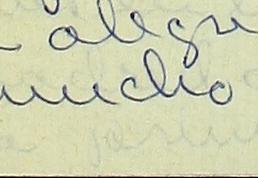 alegr
mucho